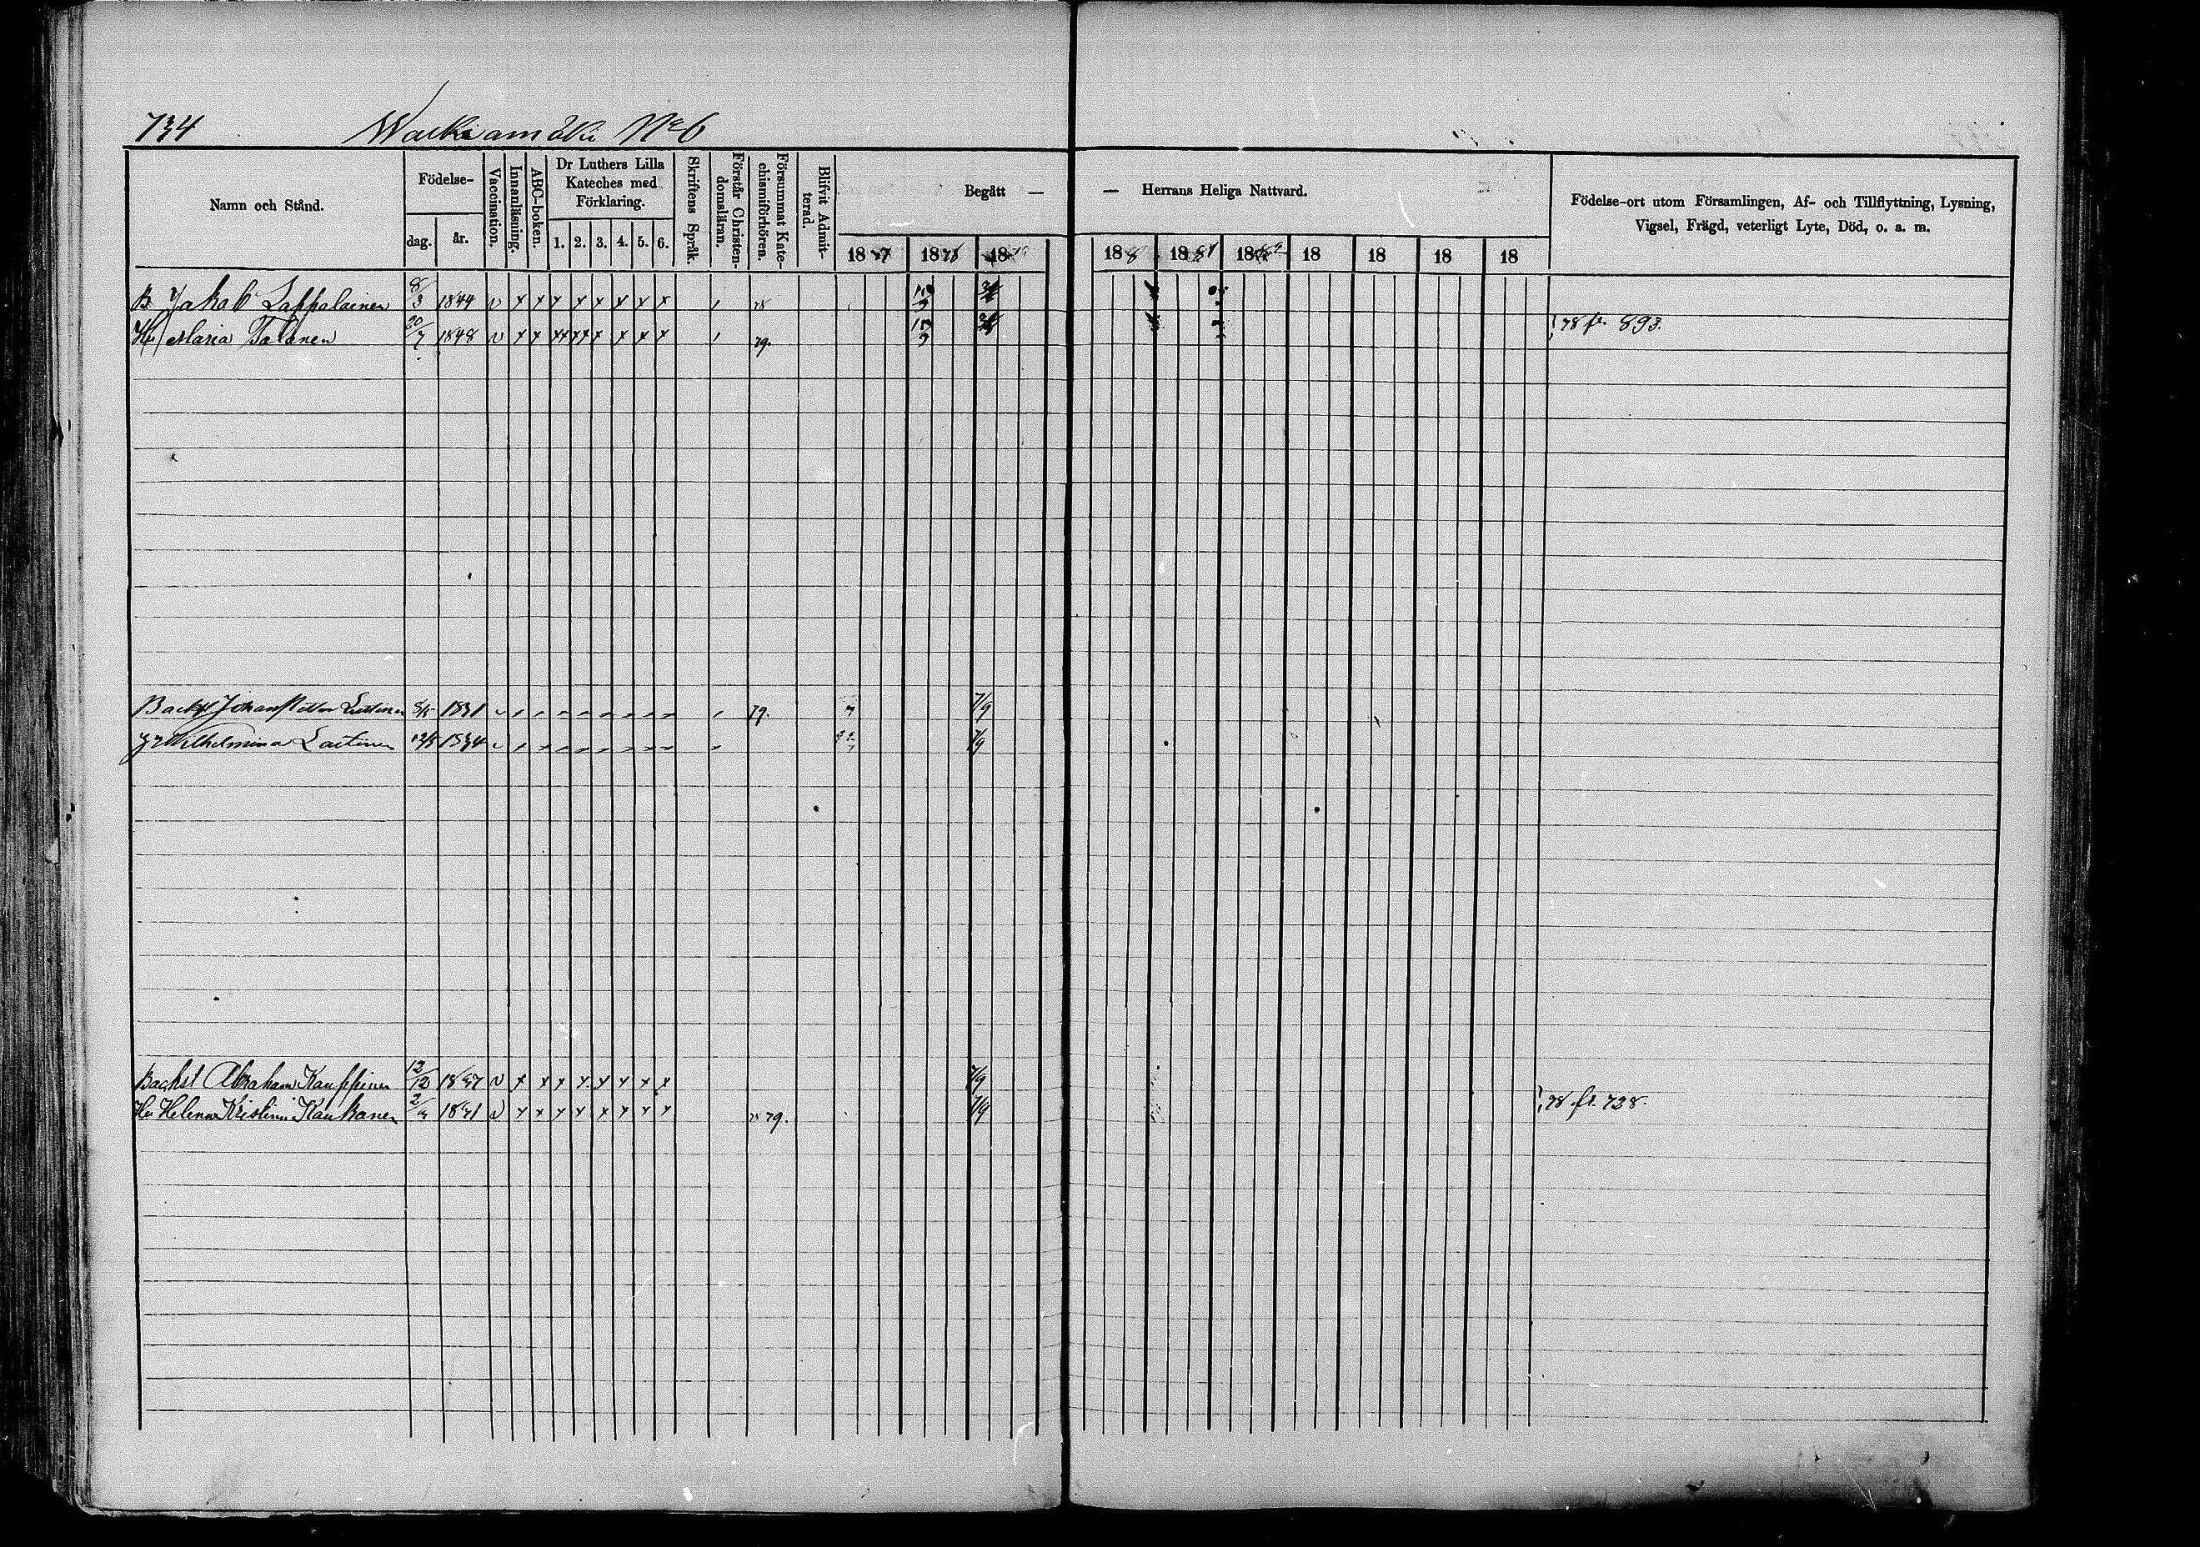 734 Walkiamäki No 6
Namn och Stånd.
Födelse-
dag. år.
Vaccination.
Innanläsning.
ABC-boken.
Dr Luthers Lilla
Kateches med
Förklaring.
1. 2. 3. 4. 5. 6.
Skriftens Språk.
Förstår Christen-
domsläran.
Försummat Kate-
chismiförhören.
Blifvit Admit-
terad.
Begått —
— Herrans Heliga Nattvard.
18 18 18 18 18 81 18 18 18 18 18
Födelse-ort utom Församlingen, Af- och Tillflyttning, Lysning,
Vigsel, Frägd, veterligt Lyte, Död, o. a. m.
B Jakob Lappalainen 8/3 1844 v x x x x x x x x 78
Hu Maria Tolonen 20/7 1848 v x x xx xx x x x x 79. 78 fr. 893.
Backst Johan Petter 1831 79. 7/9
Wilhelmina 1834 7/9
Backst Abraham Kauppinen 12/12 1837 v x x x x x x x x 7/9
Hu Helena Kristina 1841 v x x x x x x x x 78 79. 7/9 78 fr. 738.